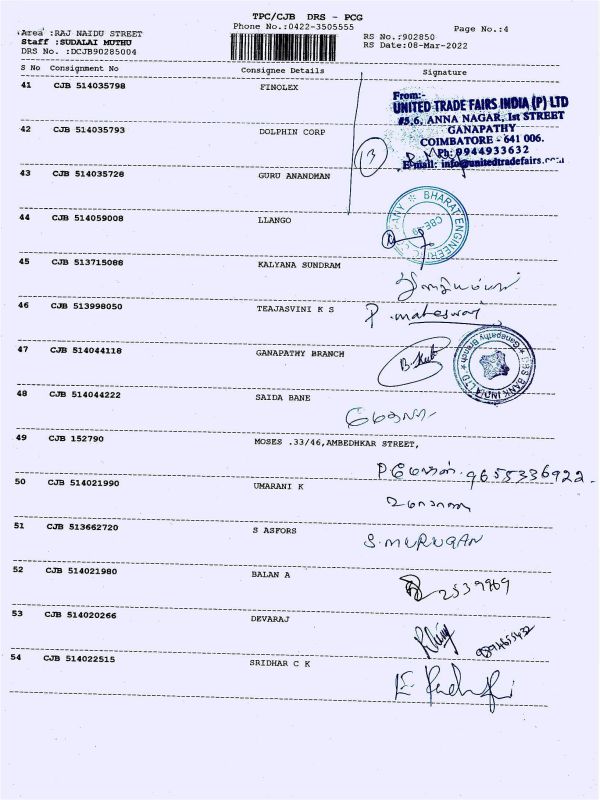 TPC/CJB DRS - PCG
Area :RAJ NAIDU STREET
Phone No.:0422-3505555
Page No.:4
Staff :SUDALAI MUTHU
RS No.:902850
DRS No. :DCJB90285004
RS Date:08-Mar-2022
S No Consignment No Consignee Details Signature
41 CJB 514035798 FINOLEX
From:-
UNITED TRADE FAIRS INDIA (P) LTD
#5,6, ANNA NAGAR, 1st STREET
GANAPATHY
COIMBATORE - 641 006.
Ph: 9944933632
E-mail: info@unitedtradefairs.com
42 CJB 514035793 DOLPHIN CORP
13
43 CJB 514035728 GURU ANANDMAN
44 CJB 514059008 LLANGO
BHARAT ENGINEERING COMPANY
45 CJB 513715088 KALYANA SUNDRAM
46 CJB 513998050 TEAJASVINI K S
P. maheswari
47 CJB 514044118 GANAPATHY BRANCH
DBS BANK INDIA LTD. Ganapathy Branch
48 CJB 514044222 SAIDA BANE
49 CJB 152790 MOSES .33/46,AMBEDHKAR STREET,
9655336922
50 CJB 514021990 UMARANI K
51 CJB 513662720 S ASFORS
S. MURUGAN
52 CJB 514021980 BALAN A
2539969
53 CJB 514020266 DEVARAJ
54 CJB 514022515 SRIDHAR C K